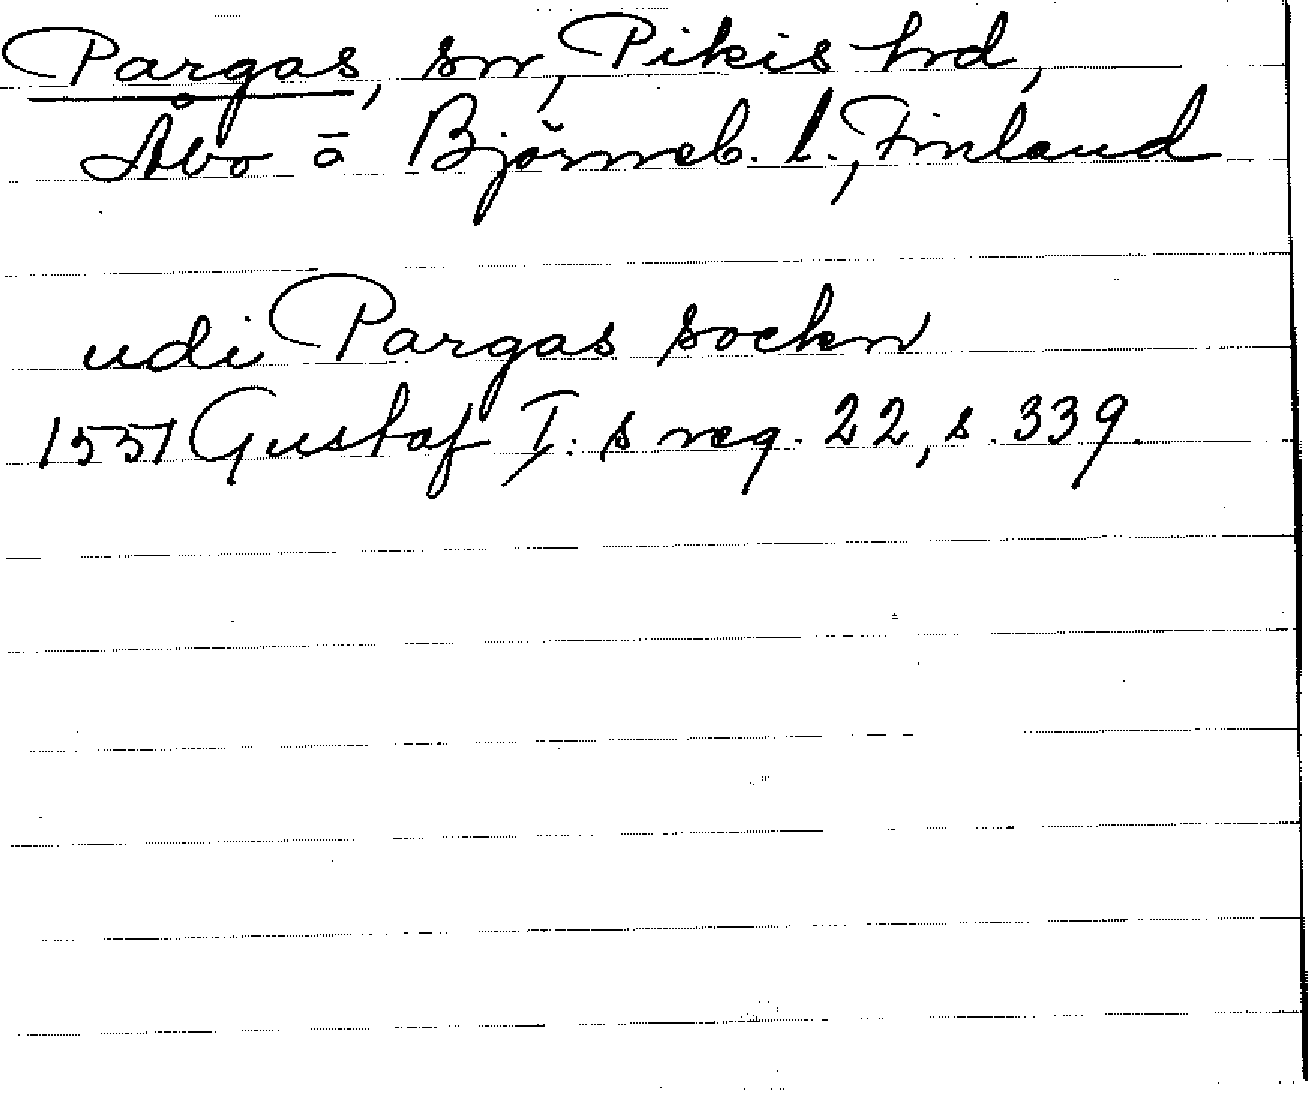 Pargas, sn, Pikis hd,
Åbo o Björneb. l., Finland
udi Pargas sockn
1551 Gustaf I:s reg. 22, s. 339.